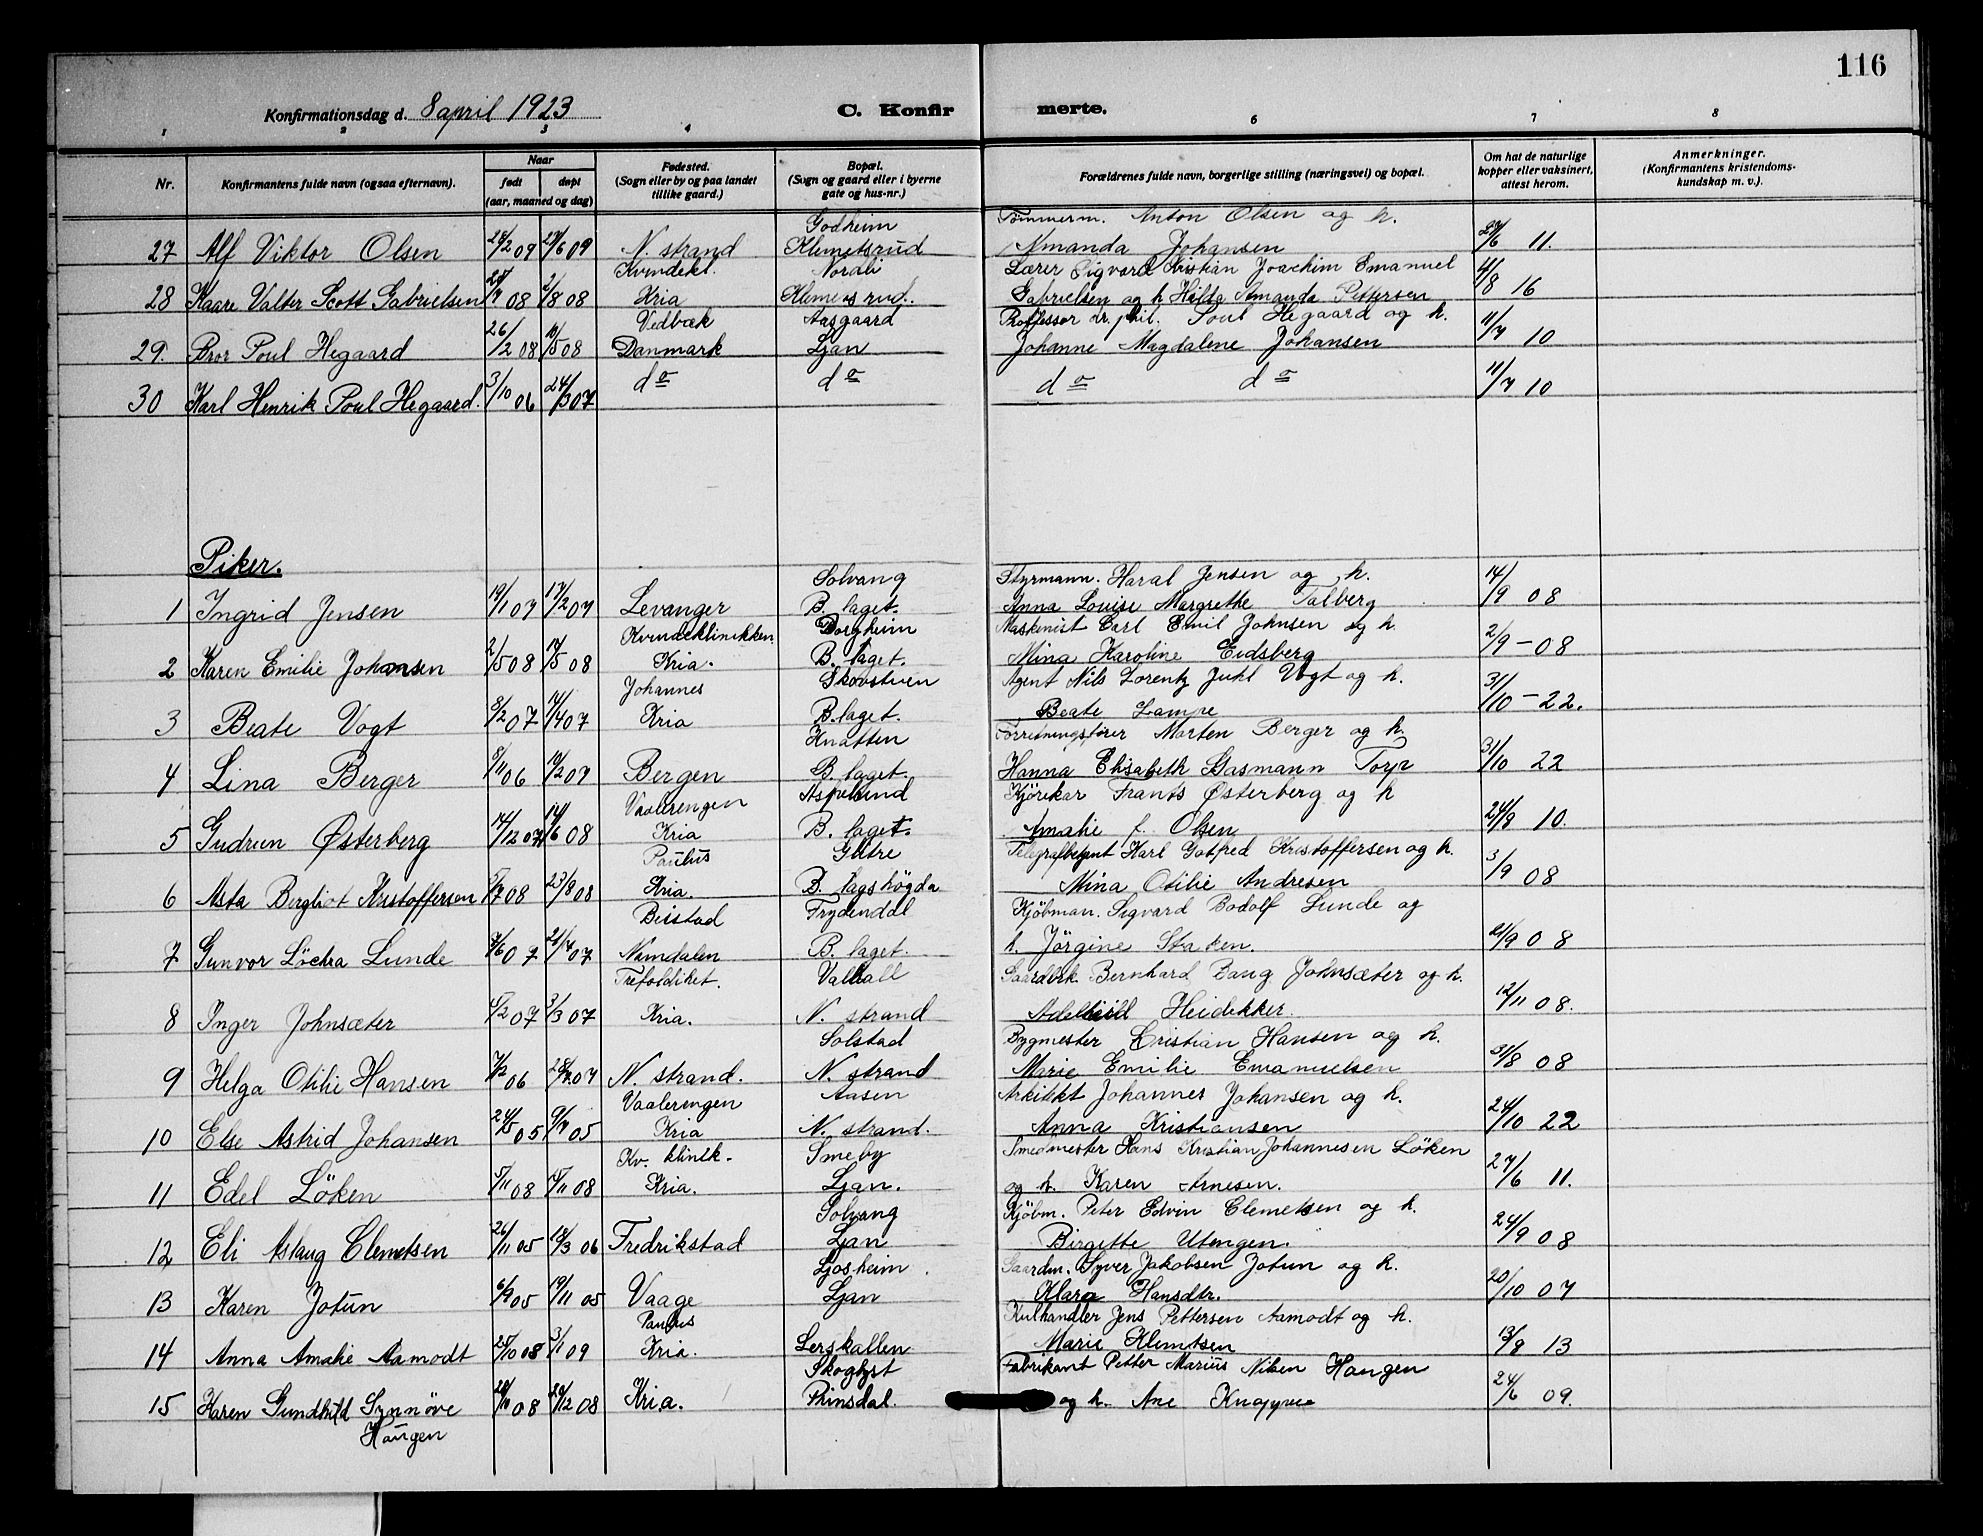 116
Konfirmationsdag d. 8 april 1923 C. Konfir merte.
1 2 3 4 6 7 8
Nr. Konfirmantens fulde navn (ogsaa efternavn). Naar født døpt (aar, maaned og dag) Fødested. (Sogn eller by og paa landet tillike gaard.) Bopæl. (Sogn og gaard eller i byerne gate og hus-nr.) Forældrenes fulde navn, borgerlige stilling (næringsvei) og bopæl. Om hat de naturlige kopper eller vaksinert, attest herom. Anmerkninger. (Konfirmantens kristendoms-kundskap m. v.).
Godheim Tømmerm. Anton Olsen og h.
27 Alf Viktor Olsen 09 09 N. strand Klemetsrud Amanda Johansen 11.
Kvindekl. Nordli Lærer Sigvard Kristian Joachim Emanuel
28 Kaare Valter Scott Gabrielsen 08 08 Kria Klemetsrud. Gabrielsen og h Hilda Amanda Pettersen 4/8 16
Vedbæk Aasgaard Proffessor dr. phil. Poul Hegaard og h.
29. Bror Poul Hegaard 26/2 08 10/5 08 Danmark Ljan Johanne Magdalene Johansen 11/7 10
30 Karl Henrik Poul Hegaard. 3/10 06 24/3 07 do do do do 11/7 10
Piker.
Solvang Styrmann. Haral Jensen og h.
1 Ingrid Jensen 19/1 07 17/2 07 Levanger B. laget. Anna Louise Margrethe Talberg 14/9 08
Kvindeklinikken Borgheim Maskinist Carl Emil Johnsen og h.
2 Karen Emilie Johansen 2/5 08 08 Kria. B. laget. Mina Karoline Eidsberg 2/9 - 08
Johannes Skovstuen Agent Nils Lorentz Juhl Vogt og h.
3 Beate Vogt 8/2 07 07 Kria B. laget. Beate Lampe 31/10 - 22.
Knatten Forretningsfører Morten Berger og h.
4 Lina Berger 8/11 06 10/2 07 Bergen B. laget. Hanna Elisabeth Gasmann Torp 31/10 22
Vaalerengen Aspelund Kjørekar Frants Østerberg og h
5 Gudrun Østerberg 14/12 07 14/6 08 Kria B. laget. Amalie f. Olsen 24/9 10.
Paulus Telegrafbetjent Karl Gotfred Kristoffersen og h.
6 Asta Bergliot Kristoffersen 08 23/8 08 Kria. B. lagshögda Mina Otilie Andresen 3/9 08
Beistad Frydendal Kjöbman. Sigvard Bodolf Lunde og
7 Gunvor Lunde 07 07 Namdalen B. laget. h. Jörgine Staken. 08
Trefoldihet. Valhall Bernhard Bang Johnsæter og h.
8 Inger Johnsæter 07 3/3 07 Kria. N. strand Adelheid Heidekker. 12/11 08.
Solstad Bygmester Cristian Hansen og h.
9 Helga Otilie Hansen 06 07 N. strand. N. strand Marie Emilie Emanuelsen 31/8 08
Vaalerengen Aasen Arkitekt Johannes Johansen og h.
10 Else Astrid Johansen 24/5 05 05 Kria N. strand. Anna Kristiansen 24/10 22
Kv. klinik. Smeby Smedmester Hans Kristian Johannesen Löken
11 Edel Löken 5/11 08 08 Kria. Ljan. og h. Karen Arnesen. 27/6 11.
Solvang Kjöbm. Peter Edvin Clemetsen og h.
12 Eli Aslaug Clemetsen 26/11 05 18/3 06 Fredrikstad Ljan Birgitte Utengen. 24/9 08
Ljosheim Gaardm. Syver Jakobsen Jotun og h.
13 Karen Jotun 6/9 05 19/11 05 Vaage Ljan Klara Hansdtr. 20/10 07
Paulus Kulhandler Jens Pettersen Aamodt og h.
14 Anna Amalie Aamodt 08 3/1 09 Kria. Lerskallen Marie Klemtsen 13/8 13
Skoglyst Fabrikant Petter Marius Nilsen Haugen
15 Karen Gundhild Synnöve 08 08 Kria. Prinsdal. og h. Ane 24/6 09.
Haugen